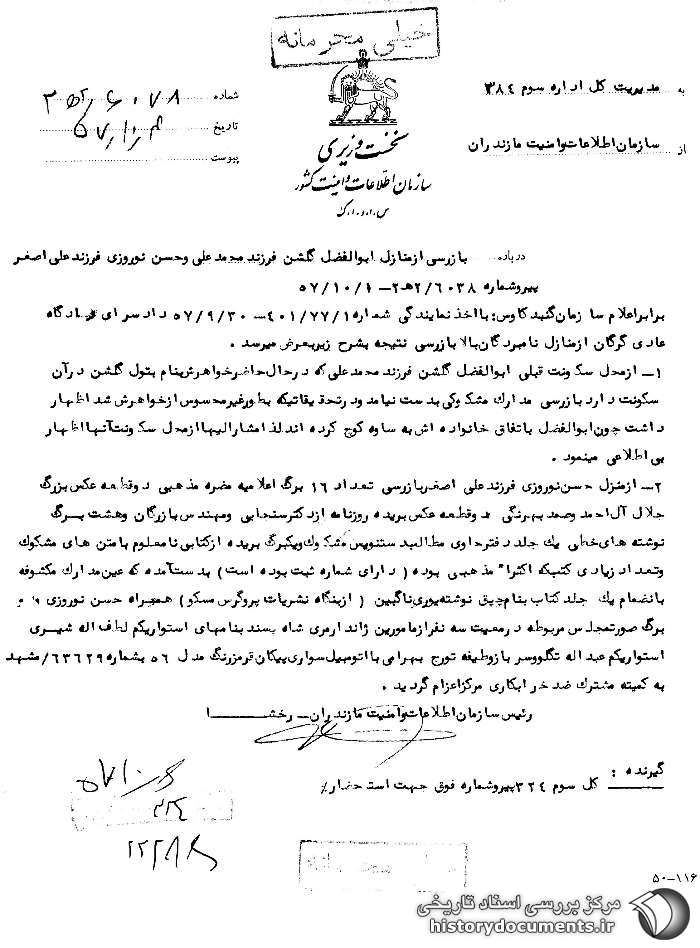 خیلی محرمانه
به مدیریت کل اداره سوم ۳۸٤
از سازمان اطلاعات وامنیت مازندران
شماره
تاریخ
پیوست
نخست وزیری
سازمان اطلاعات و امنیت کشور
س.ا.و.ا.ک
درباره بازرسی ازمنازل ابوالفضل گلشن فرزند محمدعلی وحسن نوروزی فرزندعلی اصغر
پیروشماره ۲/٦۰۳۸ه۲ـ ۵۷/۱۰/٤
برابراعلام سازمان گنبدکاوس: بااخذ نمایندگی شماره ٤۰۱/۷۷/۱ـ ۵۷/۹/۳۰ دادسرای دادگاه
عادی گرگان ازمنازل نامبردگان بالا بازرسی نتیجه بشرح زیربعرض میرسد .
۱ـ ازمحل سکونت قبلی ابوالفضل گلشن فرزند محمدعلی که درحال حاضرخواهرش بنام بتول گلشن درآن
سکونت دارد بازرسی مدارک مشکوکی بدست نیامد ودرتحقیقاتیکه بطورغیرمحسوس ازخواهرش شد اظهار
داشت چون ابوالفضل باتفاق خانواده اش به ساوه کوچ کرده اند لذا مشارالیها ازمحل سکونت آنها اظهار
بی اطلاعی مینمود .
۲ـ ازمنزل حسن نوروزی فرزندعلی اصغربازرسی تعداد ۱٦ برگ اعلامیه مضره مذهبی دوقطعه عکس بزرگ
جلال آل احمد وصمد بهرنگی دوقطعه عکس بریده روزنامه ازدکترسنجابی ومهندس بازرگان وهشت برگ
نوشته های خطی یک جلد دفترحاوی مطالب دستنویس مشکوک ویکبرگ بریده ازکتابی نامعلوم بامتن های مشکوک
وتعداد زیادی کتبیکه اکثرا" مذهبی بوده ( دارای شماره ثبت بوده است ) بدست آمده که عین مدارک مکشوفه
بانضمام یک جلد کتاب بنام چپق نوشته یوری ناگیبین ( ازبنگاه نشریات پروگرس مسکو ) همراه حسن نوروزی و
برگ صورتمجلس مربوطه درمعیت سه نفرازمامورین ژاندارمری شاه پسند بنامهای استواریکم لطف اله شیری
استواریکم عبداله تکلو وسربازوظیفه تورج بهرامی بااتومبیل سواری پیکان قرمزرنگ مدل ۵٦ بشماره ٦۳٦۲۹/مشهد
به کمیته مشترک ضدخرابکاری مرکزاعزام گردید .
رئیس سازمان اطلاعات وامنیت مازندران ـ رخشا
گیرنده :
کل سوم ۳۲٤ پیروشماره فوق جهت استحضار٪
۳۲٤
خیلی محرمانه
۵۰-۱۱٦
مرکز بررسی اسناد تاریخی
historydocuments.ir